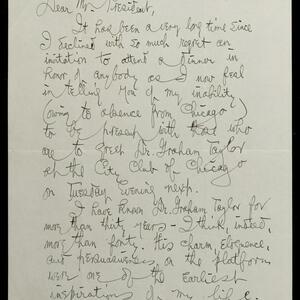 Dear Mr. President,
It has been a very long time since
I declined with so much regret an
invitation to attend a dinner in
honor of anybody as I now feel
in telling you of my inability
(owing to absence from Chicago)
to be present with those who
are to greet Dr. Graham Taylor
at the City Club of Chicago
on Tuesday evening next.
I have known Dr. Graham Taylor for
more than thirty years - I think, indeed,
more than forty. His charm, eloquence,
and persuasiveness on the platform
were one of the earliest
inspirations in my life